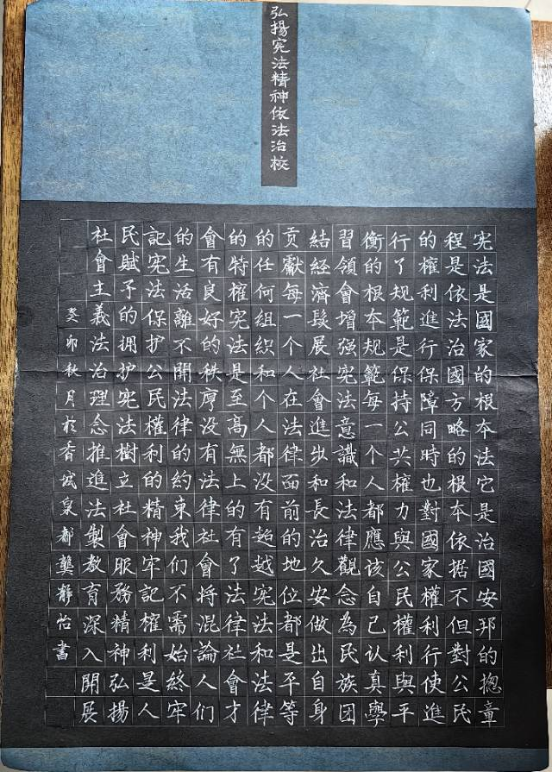 弘揚宪法精神依法治校
宪法是國家的根本法它是治國安邦的摠章
程是依法治國方略的根本依据不但對公民
的權利進行保障同時也對國家權利行使進
行了规範是保持公共權力與公民權利與平
衡的根本规範每一个人都應該自己认真學
習領會增强宪法意識和法律觀念為民族团
結經濟髮展社會進步和長治久安做出自身
贡獻每一个人在法律面前的地位都是平等
的任何組織和个人都没有超越宪法和法律
的特權宪法是至高無上的有了法律社會才
會有良好的秩序没有法律社會將混論人们
的生活離不開法律的約束我们不需始終牢
記宪法保护公民權利的精神牢記權利是人
民賦予的拥护宪法樹立社會服務精神弘揚
社會主義法治理念推進法製教育深入開展
癸卯秋月於香城泉都龔靜怡書